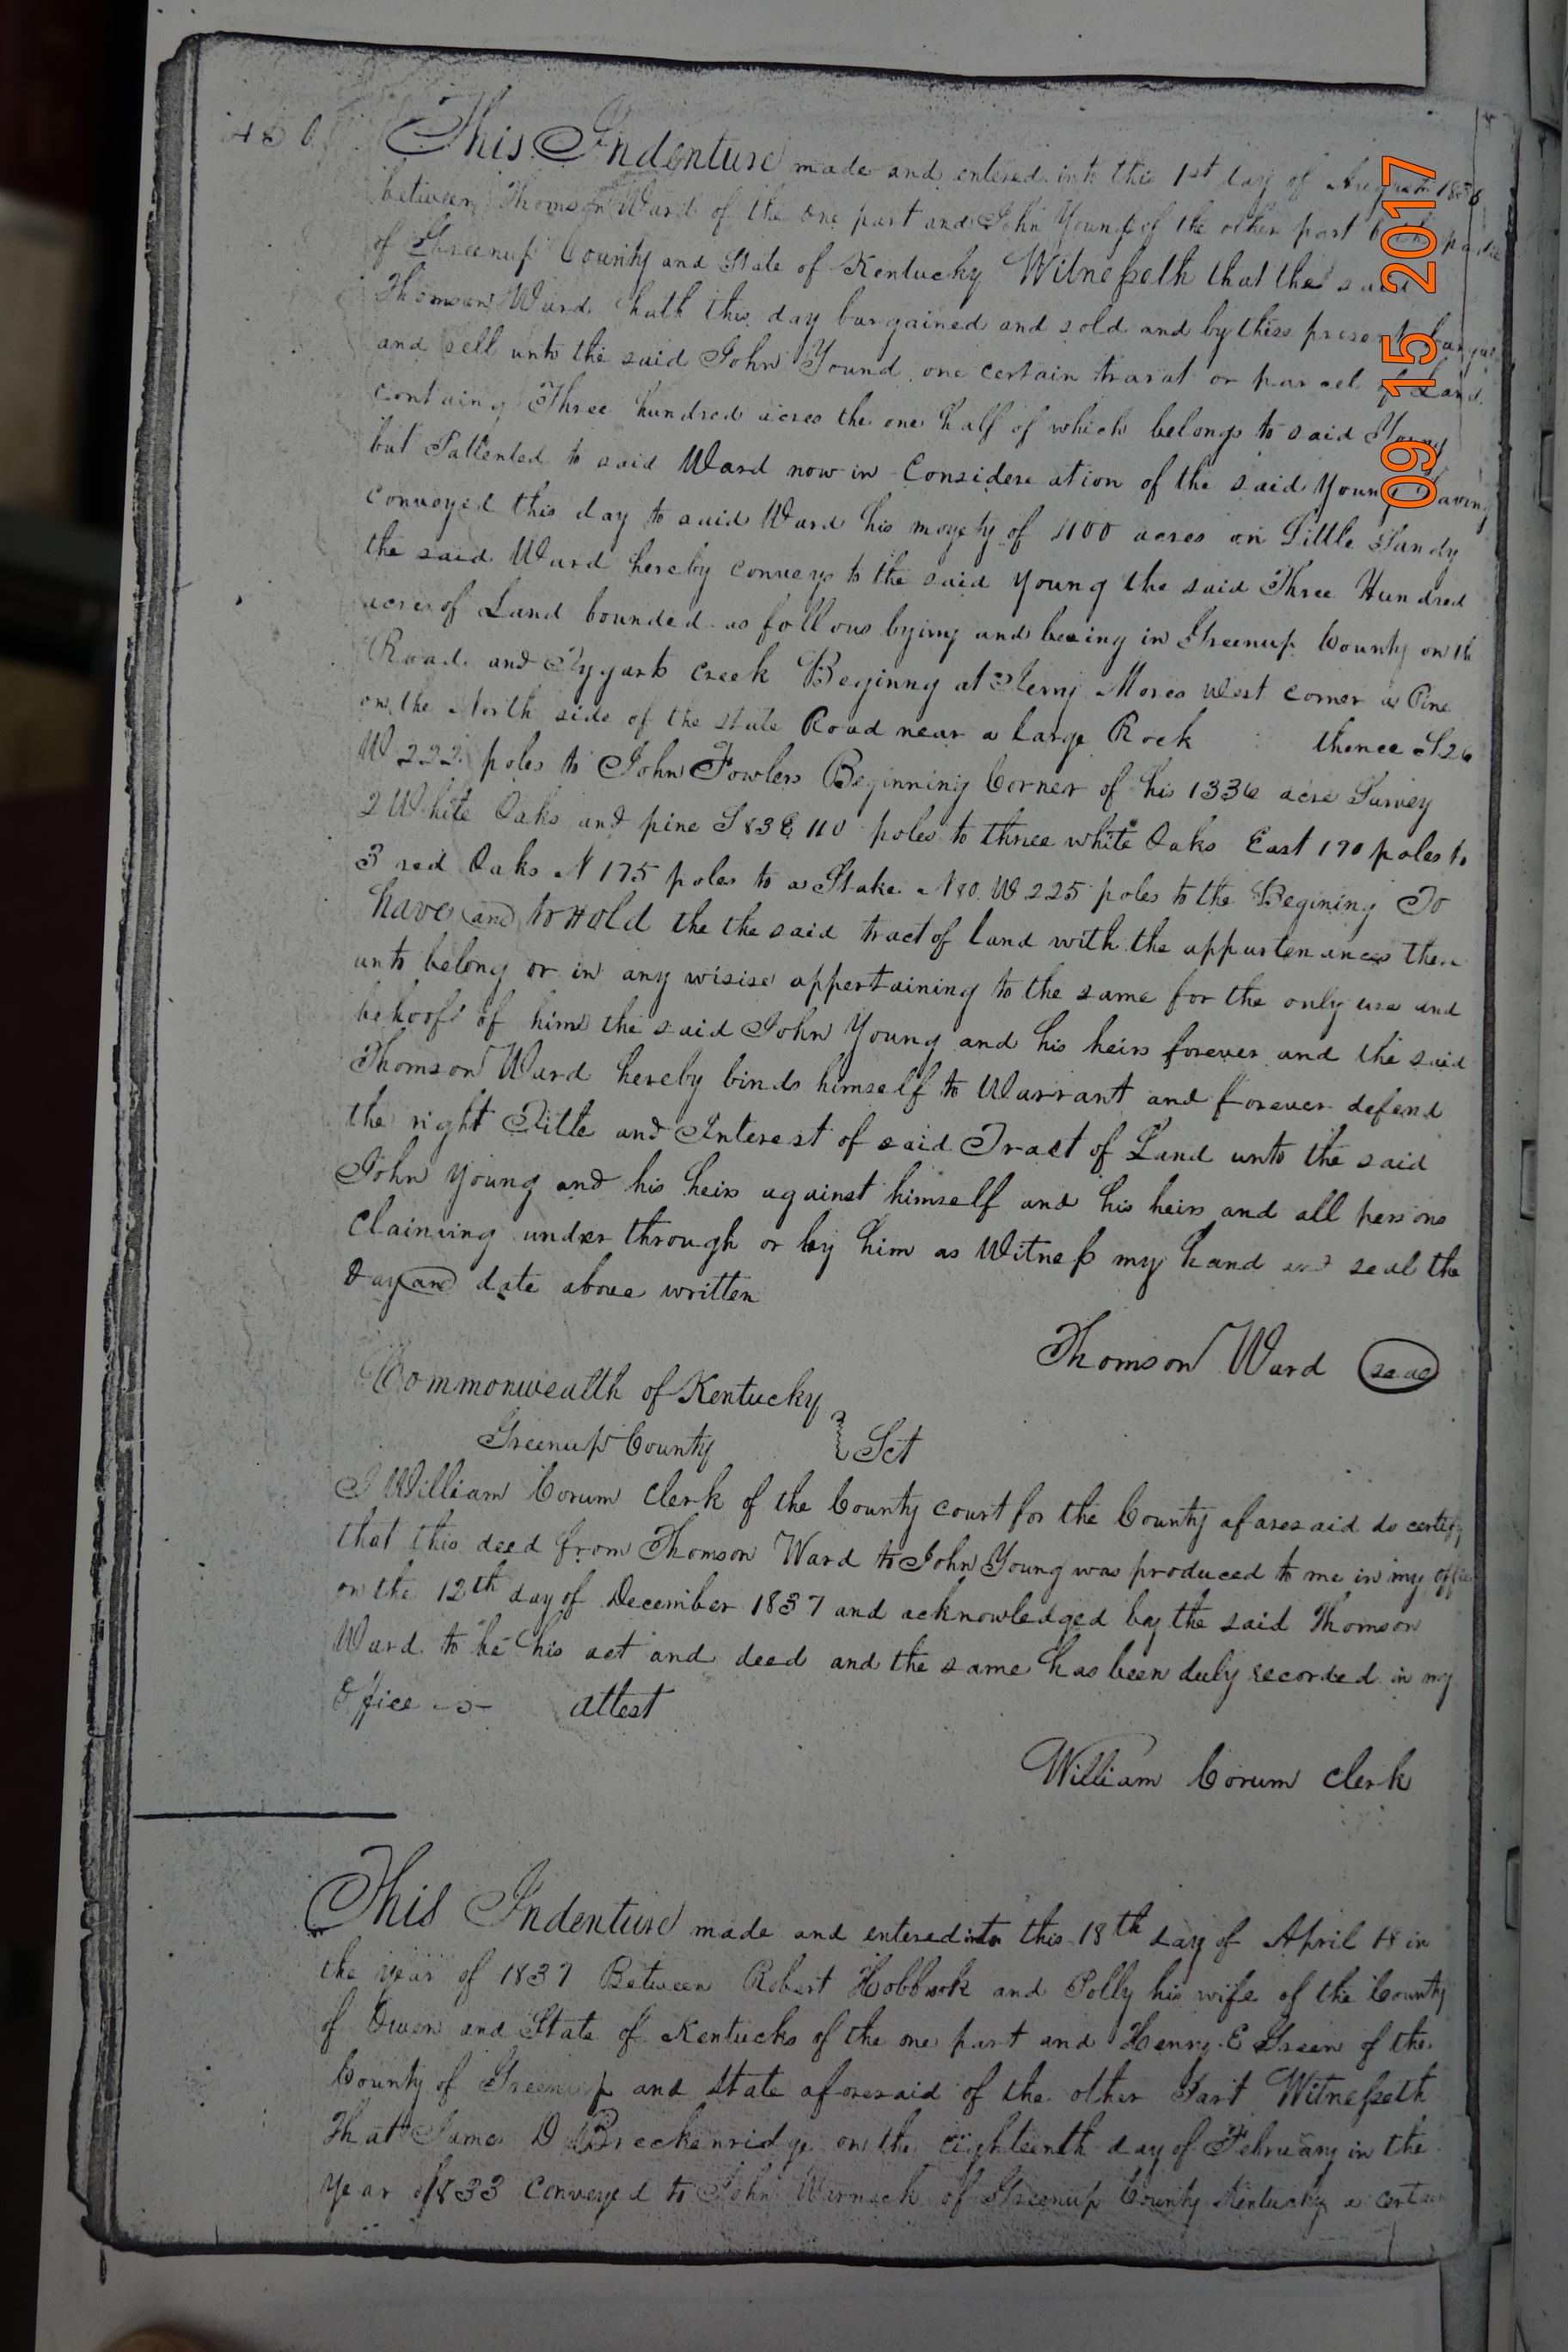 This Indenture made and entered into this 1st day of August
between Thomson Ward of the one part and John Young of the other part both
of Greenup County and State of Kentucky Witnesseth that the said
Thomson Ward hath this day bargained and sold and by thiss present
and sell unto the said John Yound one certain trarat or parcel of Land
containg Three hundred acres the one half of which belongs to said Young
but Pattented to said Ward now in Considere ation of the said Young having
conveyed this day to said Ward his moyety of 400 acres on Little Sandy
the said Ward hereby conveys to the said Young the said Three Hundred
acres of Land bounded as follows lying and beeing in Greenup County on th
Road and Tygarts Creek Beginng at Mores West corner a Pine
on the North side of the state Road near a large Rock thence S 26
W 222 poles to John Fowlers Beginning Corner of his 1336 acre Survey
2 White Oaks and pine S 83 E 110 poles to three white Oaks East 170 poles to
3 red Oaks N 175 poles to a Stake N 80 W 225 poles to the Begining To
have and to Hold the the said tract of land with the appurtenances there
unto belong or in any wisise appertaining to the same for the only use and
behoof of him the said John Young and his heirs forever and the said
Thomson Ward hereby binds himself to Warrant and forever defend
the right Title and Interest of said Tract of Land unto the said
John Young and his heirs against himself and his heirs and all persons
claiming under through or by him as Witness my hand and seal the
day and date above written
Thomson Ward seal
Commonwealth of Kentucky
Greenup County Sct
I William Corum Clerk of the County court for the County afaresaid do certify
that this deed from Thomson Ward to John Young was produced to me in my office
on the 12th day of December 1837 and acknowledged by the said Thomson
Ward to be his act and deed and the same has been duly recorded in my
Office attest
William Corum Clerk
This Indenture made and entered into this 18th day of April 18 in
the year of 1837 Between Robert and Polly his wife of the County
of Owen and State of Kentucks of the one part and Henry E Green of the
County of Greenup and State aforesaid of the other Part Witnesseth
That James D Breckenridge on the Eighteenth day of February in the
year of 1833 Conveyed to John Warnock of Greenup County Kentucky a certain
09 15 2017